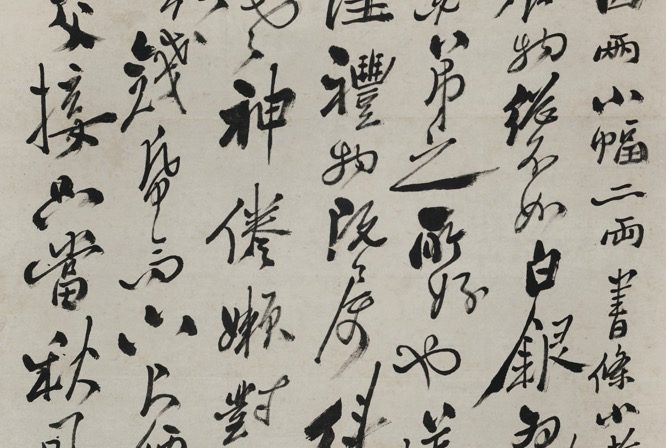 四兩小幅二兩書條小
物總不如白銀為
弟之所好也送
佳禮物既屬糾
神倦嬾對
錢紙高六尺價
交接只當秋風